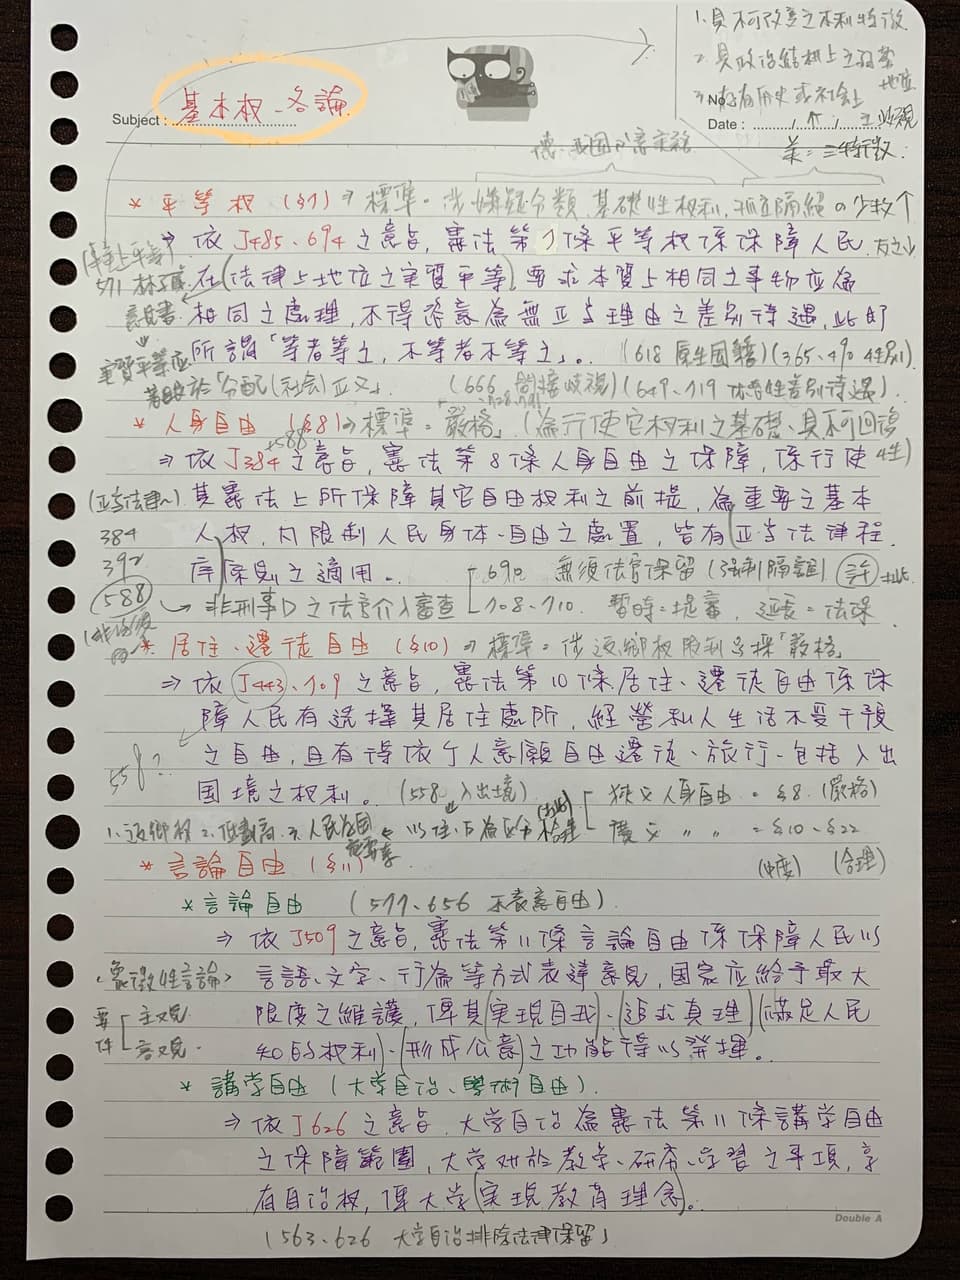 1. 具不可改變之本質特徵
2. 具政治結構上之弱勢地位
3. 有歷史或社會上
Subject :
基本权 - 各論
No
Date : / /
美：三特徵
* 平等权 (§7) ⇒ 標準：涉嫌疑分類、基礎性权利、孤立隔絕の少数
⇒ 依J485、694之意旨，憲法第7條平等权係保障人民
在(法律上地位之实質平等)，要求本質上相同之事物应為
571
意見書
相同之處理，不得恣意為無正当理由之差別待遇，此即
所謂「等者等之，不等者不等之」。 (618 原生國籍) (365、490 生理)
实質平等应
著眼於「分配(社会)正义」 (666 間接歧視) (649、719 待遇)
* 人身自由 (§8) ⇒ 標準：嚴格」 (為行使它权利之基礎、具不可回復性)
+588
⇒ 依J384之意旨，憲法第8條人身自由之保障，係行使
(正当法律~)
其憲法上所保障其它自由权利之前提，為重要之基本
384
人权，凡限制人民身体自由之處置，皆有(正当法律程
392
序)原則之適用。 690 無須法官保留 (強制隔離)
588 → 非刑事D之法官介入審查 708、710 暫時：提審，延長：法保
* 居住、遷徒自由 (§10) ⇒ 標準：涉返鄉权限制应採「嚴格」
⇒ 依J443、709之意旨，憲法第10條居住、遷徒自由係保
障人民有选擇其居住處所，經營私人生活不受干預
之自由，且有得依个人意願自由遷徒、旅行、包括入出
558?
國境之权利。 (558 入出境) 狹义人身自由 = §8 (嚴格)
1. 返鄉权 廣义 〃 〃 = §10、§22
(中度) (合理)
* 言論自由 (§11)
* 言論自由 (577、656 不表意自由)
⇒ 依J509之意旨，憲法第11條言論自由係保障人民以
<象徵性言論> 言語、文字、行為等方式表達意見，国家应給予最大
要件 主观 客观
限度之維護，俾其(实現自我)、(追求真理)(滿足人民
知的权利)、(形成公意)之功能得以發揮。
* 講学自由 (大学自治、學術自由)
⇒ 依J626之意旨，大学自治為憲法第11條講学自由
之保障範圍，大学对於教学、研究、学習之事項，享
有自治权，俾大学(实現教育理念)。
(563、626 大学自治排除法律保留)
Double A